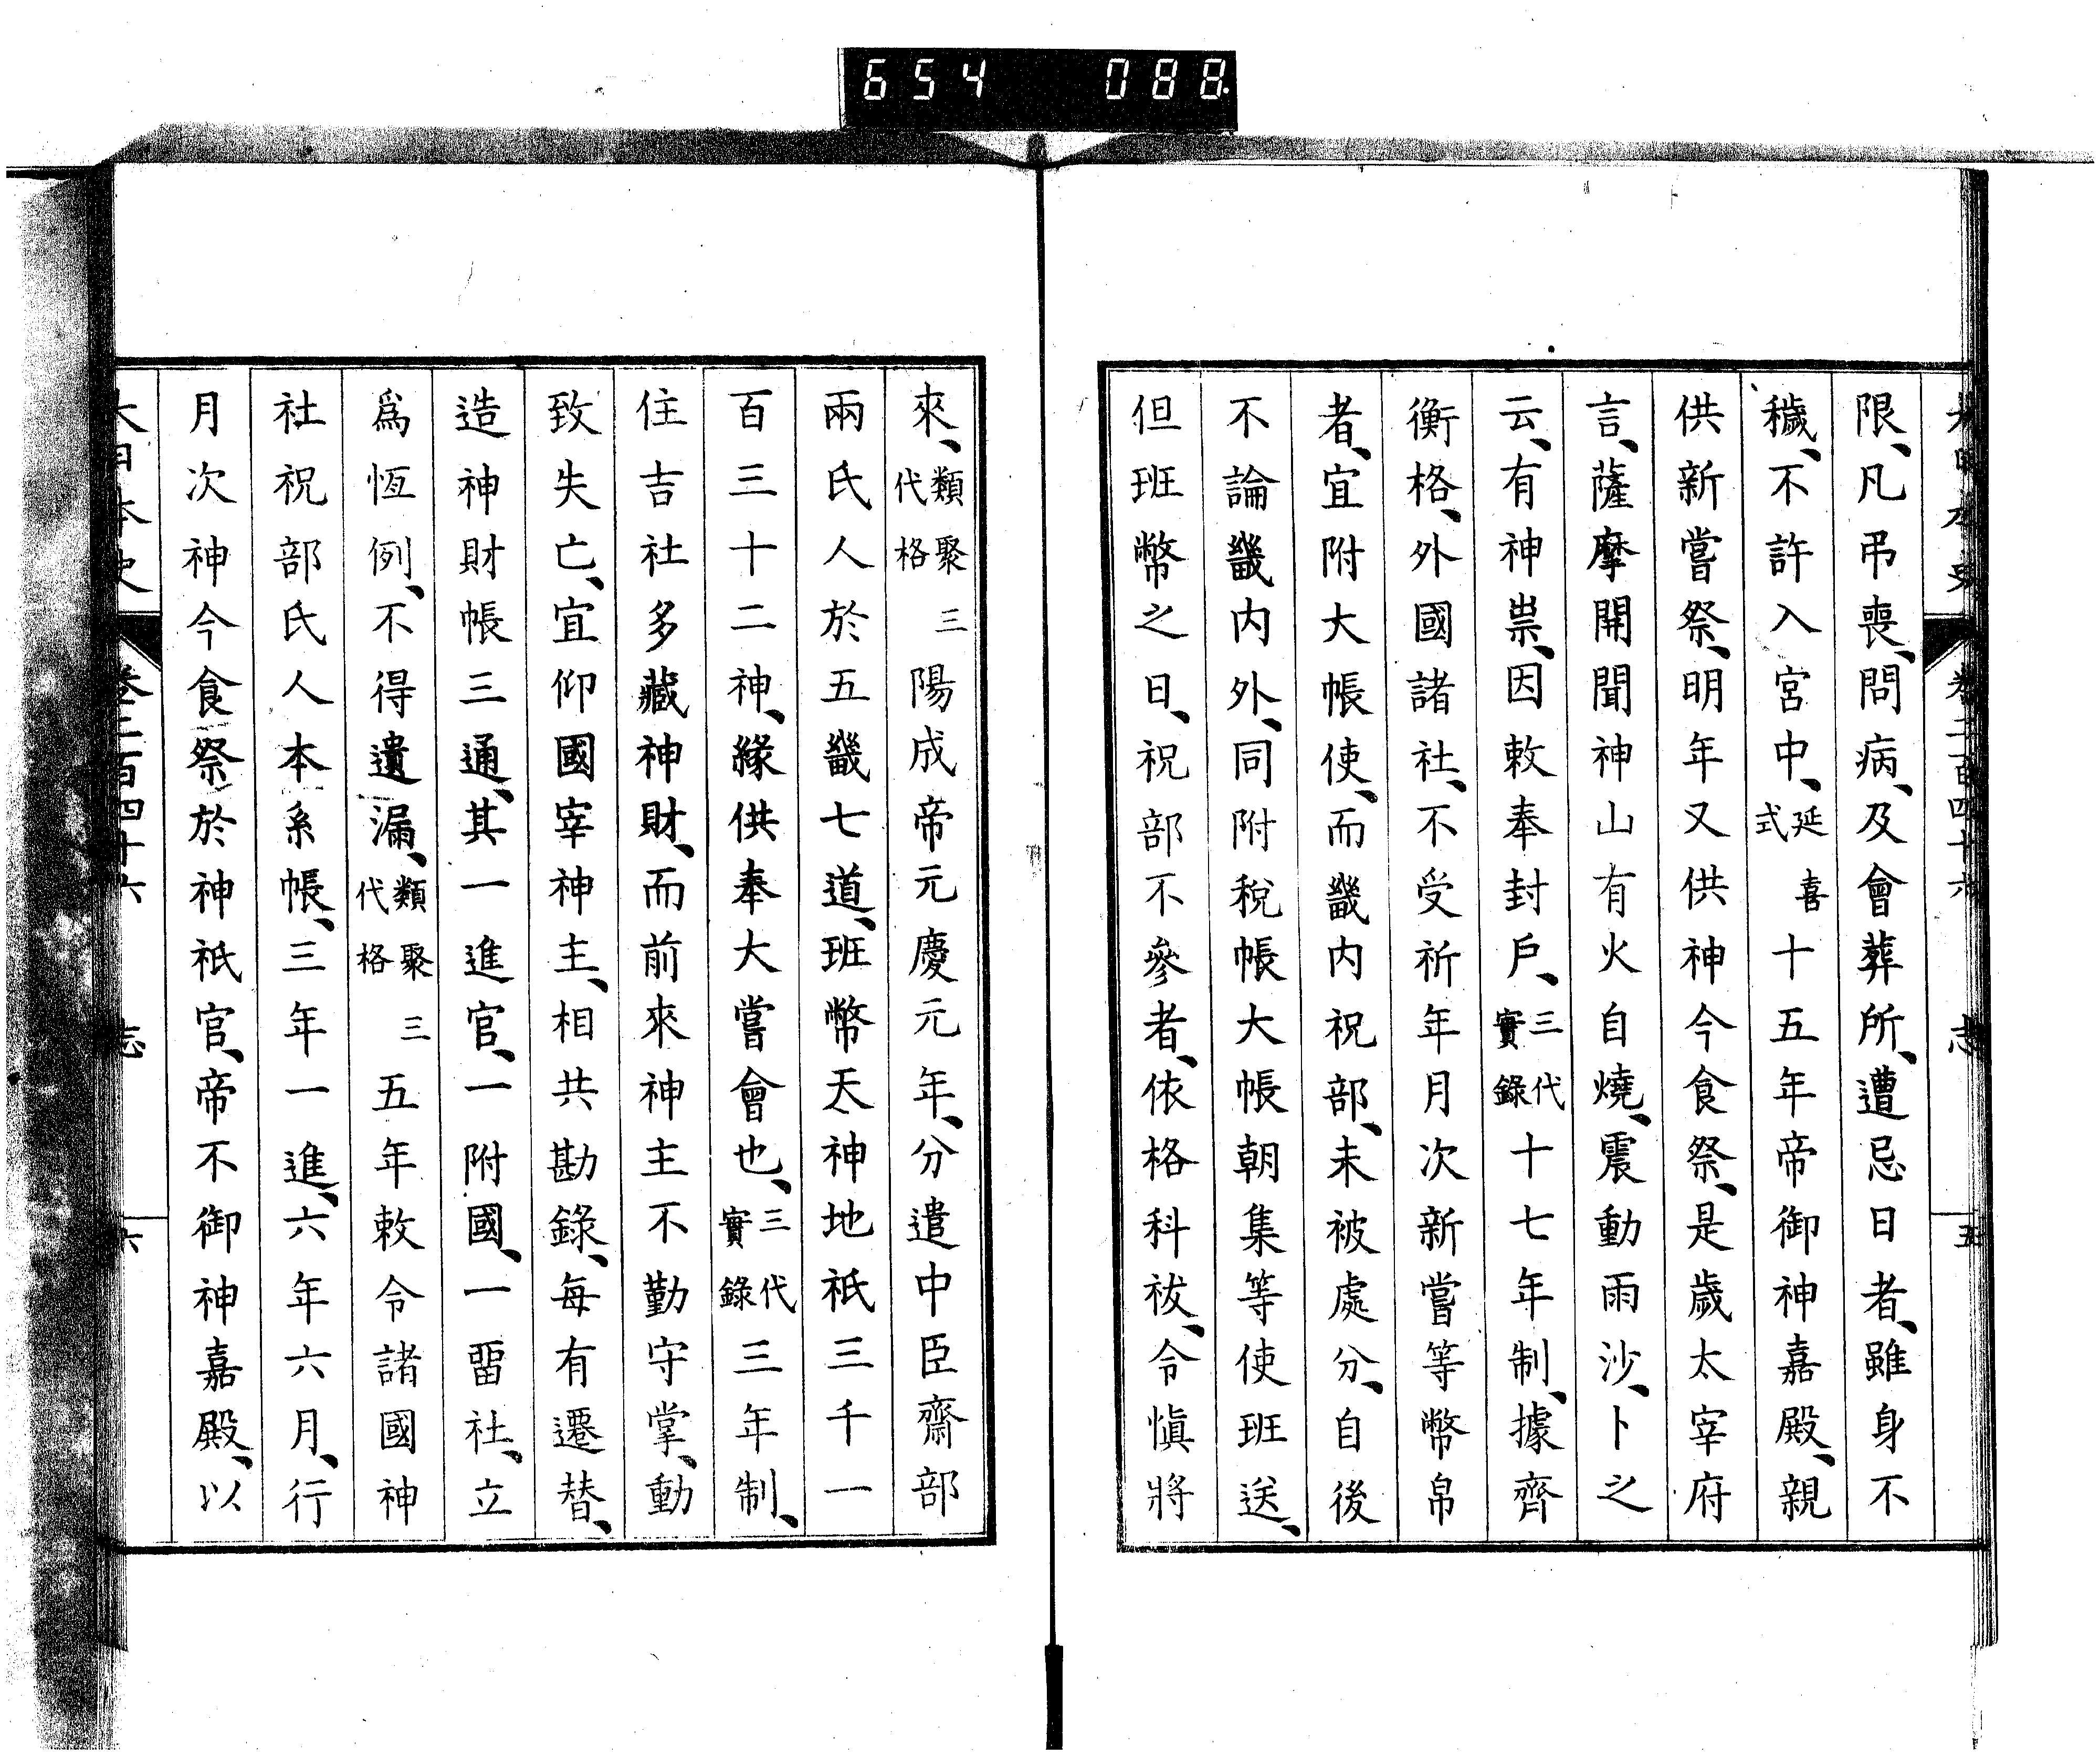 654 088
大日本史 卷二百四十六 志 五
限、凡弔喪、問病、及會葬所、遭忌日者、雖身不
穢、不許入宮中、延喜式十五年帝御神嘉殿、親
供新嘗祭、明年又供神今食祭、是歲太宰府
言、薩摩開聞神山有火自燒、震動雨沙、卜之
云、有神祟、因敕奉封戶、三代實錄十七年制、據齊
衡格、外國諸社、不受祈年月次新嘗等幣帛
者、宜附大帳使、而畿內祝部、未被處分、自後
不論畿内外、同附稅帳大帳朝集等使班送、
但班幣之日、祝部不參者、依格科祓、令愼將
來、類聚三代格陽成帝元慶元年、分遣中臣齋部
兩氏人於五畿七道、班幣天神地祇三千一
百三十二神、緣供奉大嘗會也、三代實錄三年制、
住吉社多藏神財、而前來神主不勤守掌、動
致失亡、宜仰國宰神主、相共勘錄、每有遷替、
造神財帳三通、其一進官、一附國、一留社、立
爲恆例、不得遺漏、類聚三代格五年敕令諸國神
社祝部氏人本系帳、三年一進、六年六月、行
月次神今食祭於神祇官、帝不御神嘉殿、以
大日本史 卷二百四十六 志 六